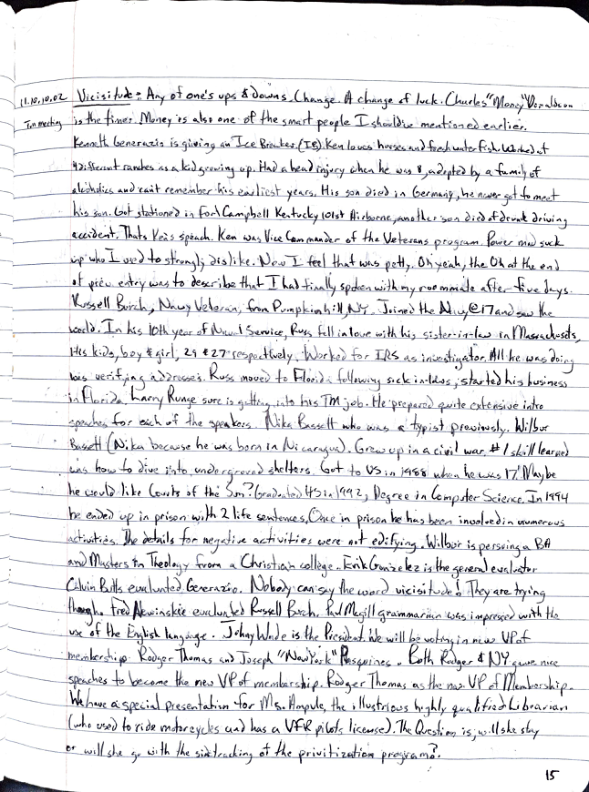 11.10.10.02 Vicisitude: Any of one's ups & downs. Change. A change of luck. Charles "Money" Donaldson
Tm meeting is the timer. Money is also one of the smart people I should've mentioned earlier.
Kenneth Generazio is giving an Ice Breaker. (IB) Ken loves horses and freshwater fish. Worked at
4 different ranches as a kid growing up. Had a head injury when he was 8, adopted by a family of
alcoholics and can't remember his earliest years. His son died in Germany, he never got to meet
his son. Got stationed in Fort Campbell Kentucky 101st Airborne, another son died of drunk driving
accident. Thats Ken's speach. Ken was Vice Commander of the Veterans program. Power mad suck
up who I used to strongly dislike. Now I feel that was petty. Oh yeah, the Oh at the end
of prev. entry was to describe that I had finally spoken with my roommate after five days.
Russell Burch, Navy Veteran, from Pumpkinhill, NY. Joined the Navy @ 17 and saw the
world. In his 10th year of Naval Service, Russ fell in love with his sister-in-law in Massachusets,
His kids, boy & girl, 29 & 27 respectively. Worked for IRS as investigator. All he was doing
was verifying addresses. Russ moved to Florida following sick in-laws, started his business
in Florida. Larry Runge sure is getting into his TM job. He prepared quite extensive intro
speaches for each of the speakers. Nika Bassett who was a typist previously. Wilbur
Bassett (Nika because he was born in Nicaragua). Grew up in a civil war. #1 skill learned
was how to dive into underground shelters. Got to US in 1988 when he was 17! Maybe
he would like Courts of the Sun? Graduated HS in 1992, Degree in Computer Science. In 1994
he ended up in prison with 2 life sentences, Once in prison he has been involved in numerous
activities. The details for negative activities were not edifying. Wilbur is persuing a BA
and Masters in Theology from a Christian college. Erik Gonzelez is the general evaluator
Calvin Butts evaluated Generazio. Nobody can say the word vicisitude! They are trying
though. Fred Newinskie evaluated Russell Burch. Paul Magill grammarian was impressed with the
use of the English language. Johny Wade is the President. We will be voting in new VP of
membership. Rodger Thomas and Joseph "New York" Pasquines. Both Rodger & NY gave nice
speaches to become the new VP of membership. Rodger Thomas as the new VP of Membership.
We have a special presentation for Ms. Ampule, the illustrious highly qualified Librarian
(who used to ride motorcycles and has a VFR pilots license). The Question is; will she stay
or will she go with the sidetracking of the privitization programs?
15